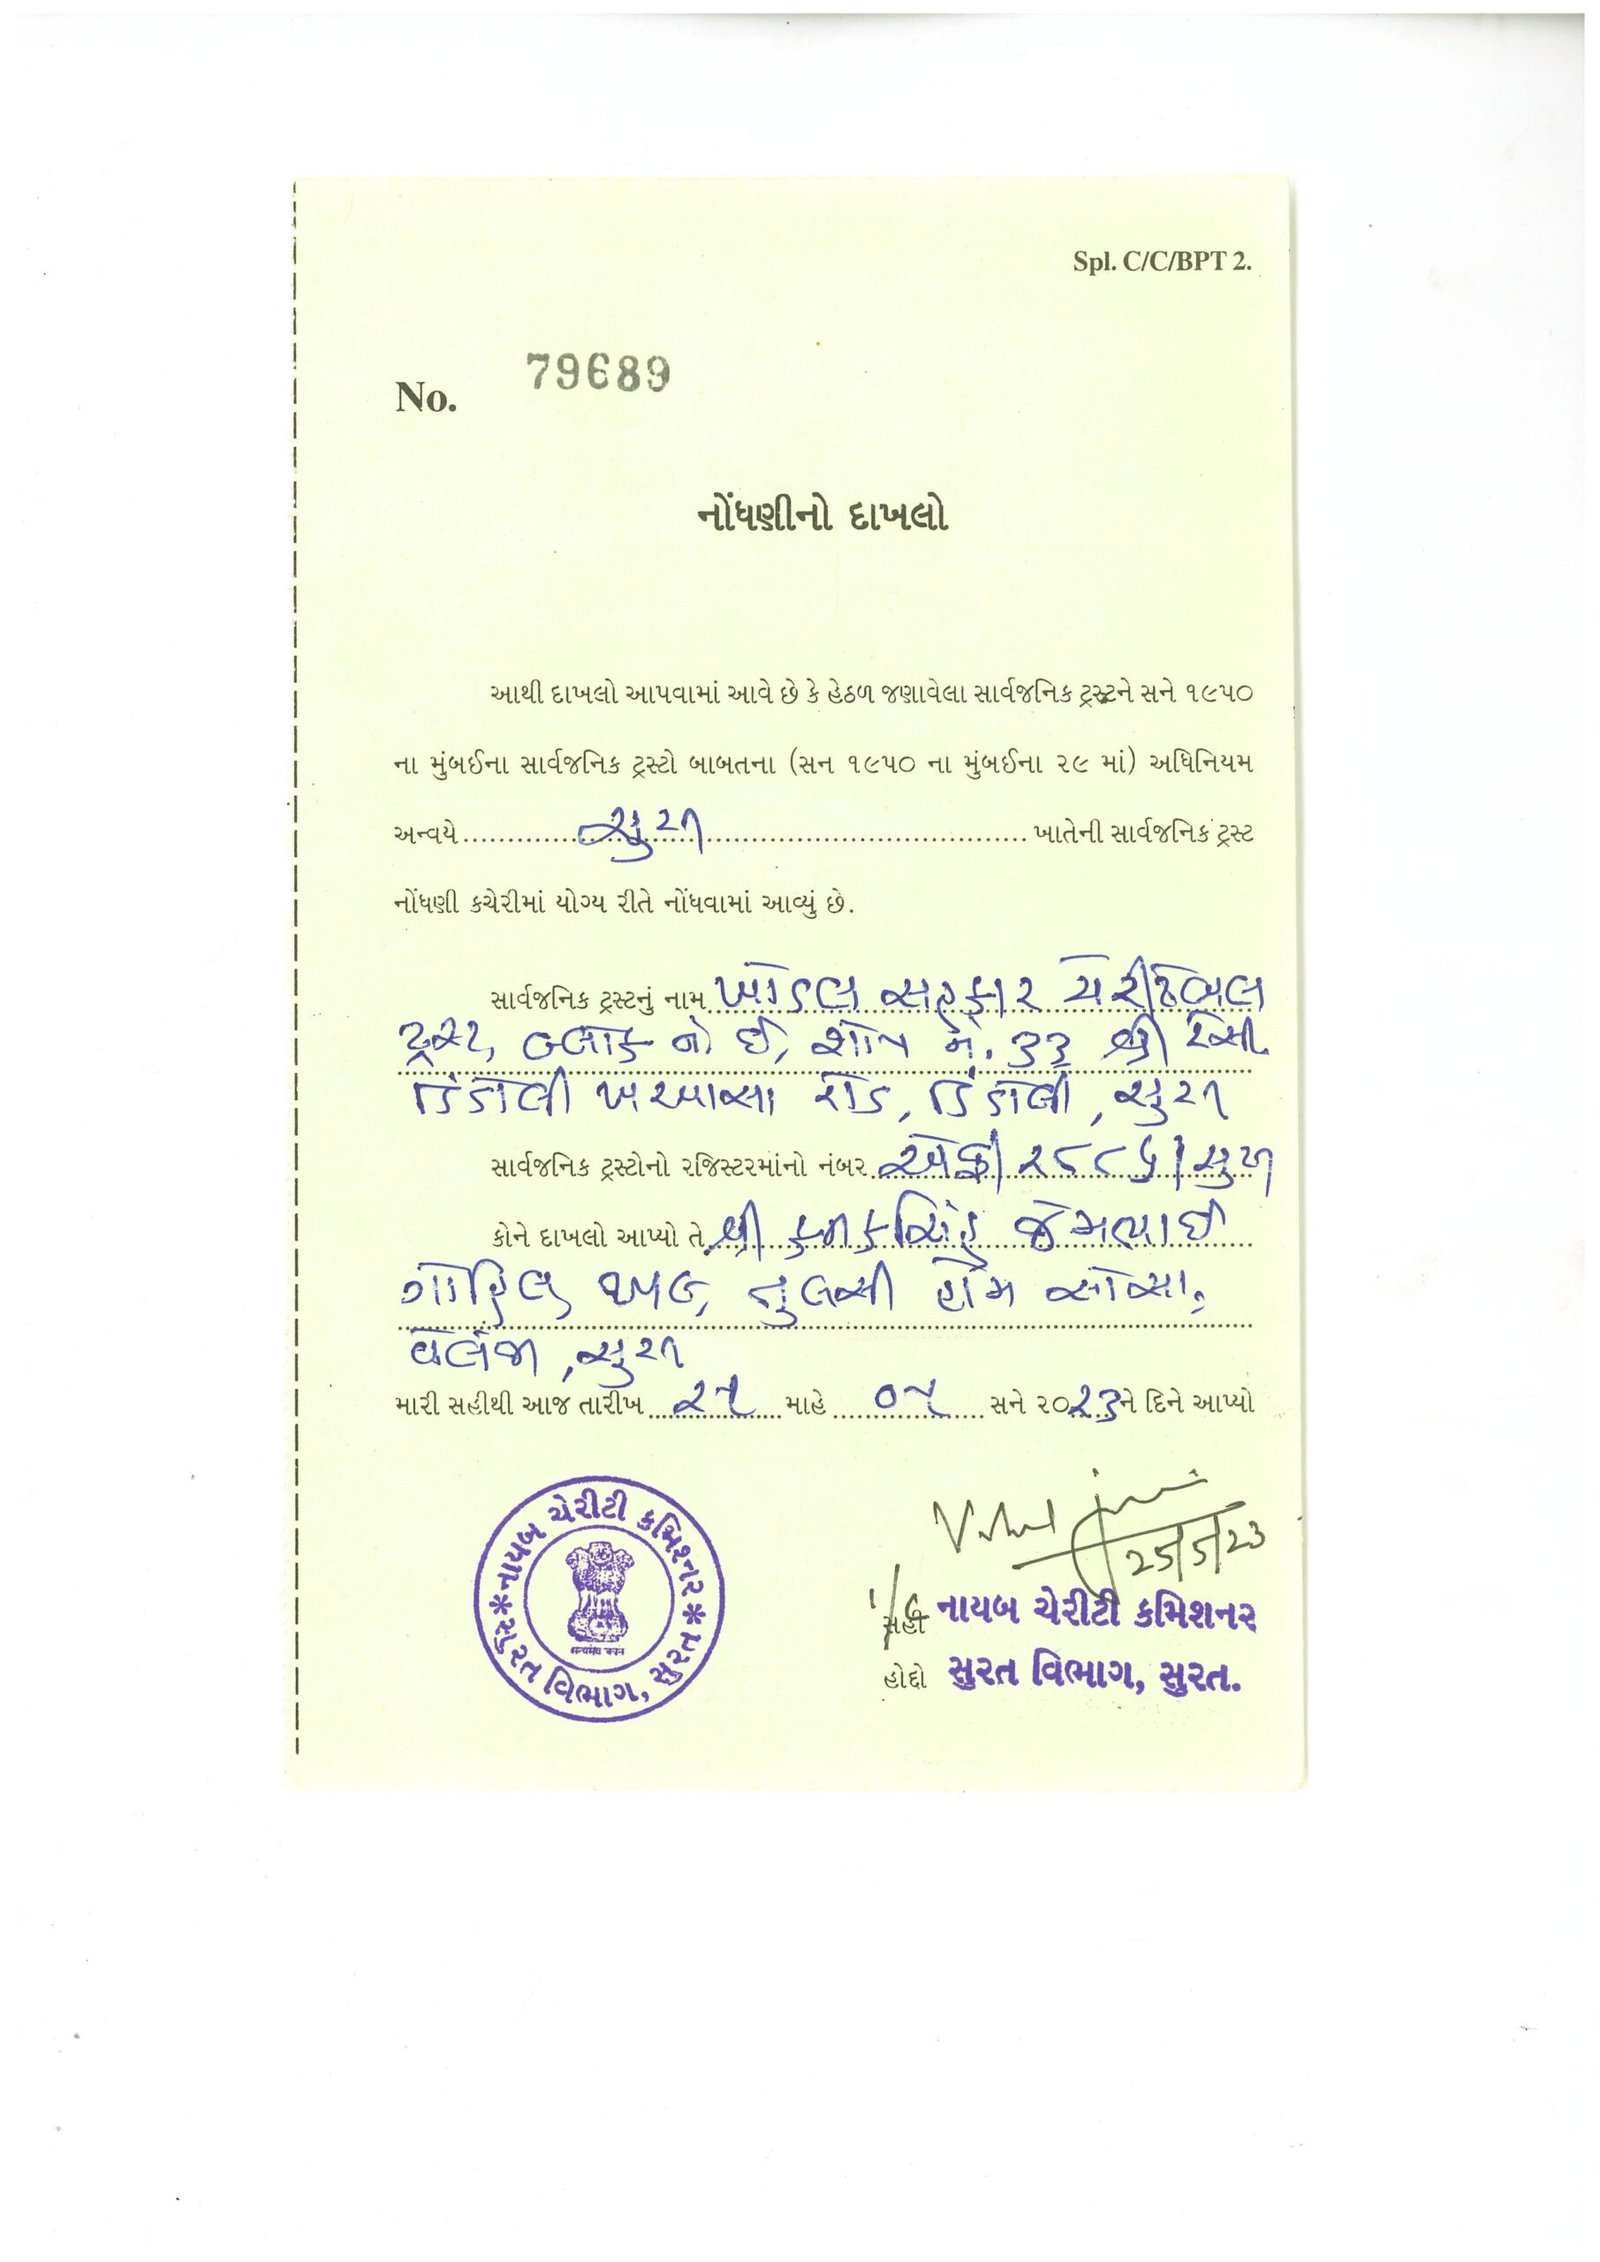 Spl. C/C/BPT 2.
No. 79689
નોંધણીનો દાખલો
આથી દાખલો આપવામાં આવે છે કે હેઠળ જણાવેલા સાર્વજનિક ટ્રસ્ટને સને ૧૯૫૦
ના મુંબઈના સાર્વજનિક ટ્રસ્ટો બાબતના (સન ૧૯૫૦ ના મુંબઈના ૨૯ માં) અધિનિયમ
અન્વયે સુરત ખાતેની સાર્વજનિક ટ્રસ્ટ
નોંધણી કચેરીમાં યોગ્ય રીતે નોંધવામાં આવ્યું છે.
સાર્વજનિક ટ્રસ્ટનું નામ ખોડલ સહકાર ચેરીટેબલ
ટ્રસ્ટ, બ્લોક નો ઈ, શોપ નં. ૩૩ શ્રી રેસી.
ડિંડોલી ખરવાસા રોડ, ડિંડોલી, સુરત
સાર્વજનિક ટ્રસ્ટોનો રજિસ્ટરમાંનો નંબર એફ/૨૮૮૬/સુરત
કોને દાખલો આપ્યો તે. શ્રી કનકસિંહ જેમાભાઈ
ગોહિલ તુલસી હોમ સોસા.
વેલંજા, સુરત
મારી સહીથી આજ તારીખ ૨૫ માહે ૦૫ સને ૨૦૨૩ને દિને આપ્યો
*નાયબ ચેરીટી કમિશ્નર* સુરત વિભાગ, સુરત
25/5/23
I/C સહી નાયબ ચેરીટી કમિશનર
હોદ્દો સુરત વિભાગ, સુરત.